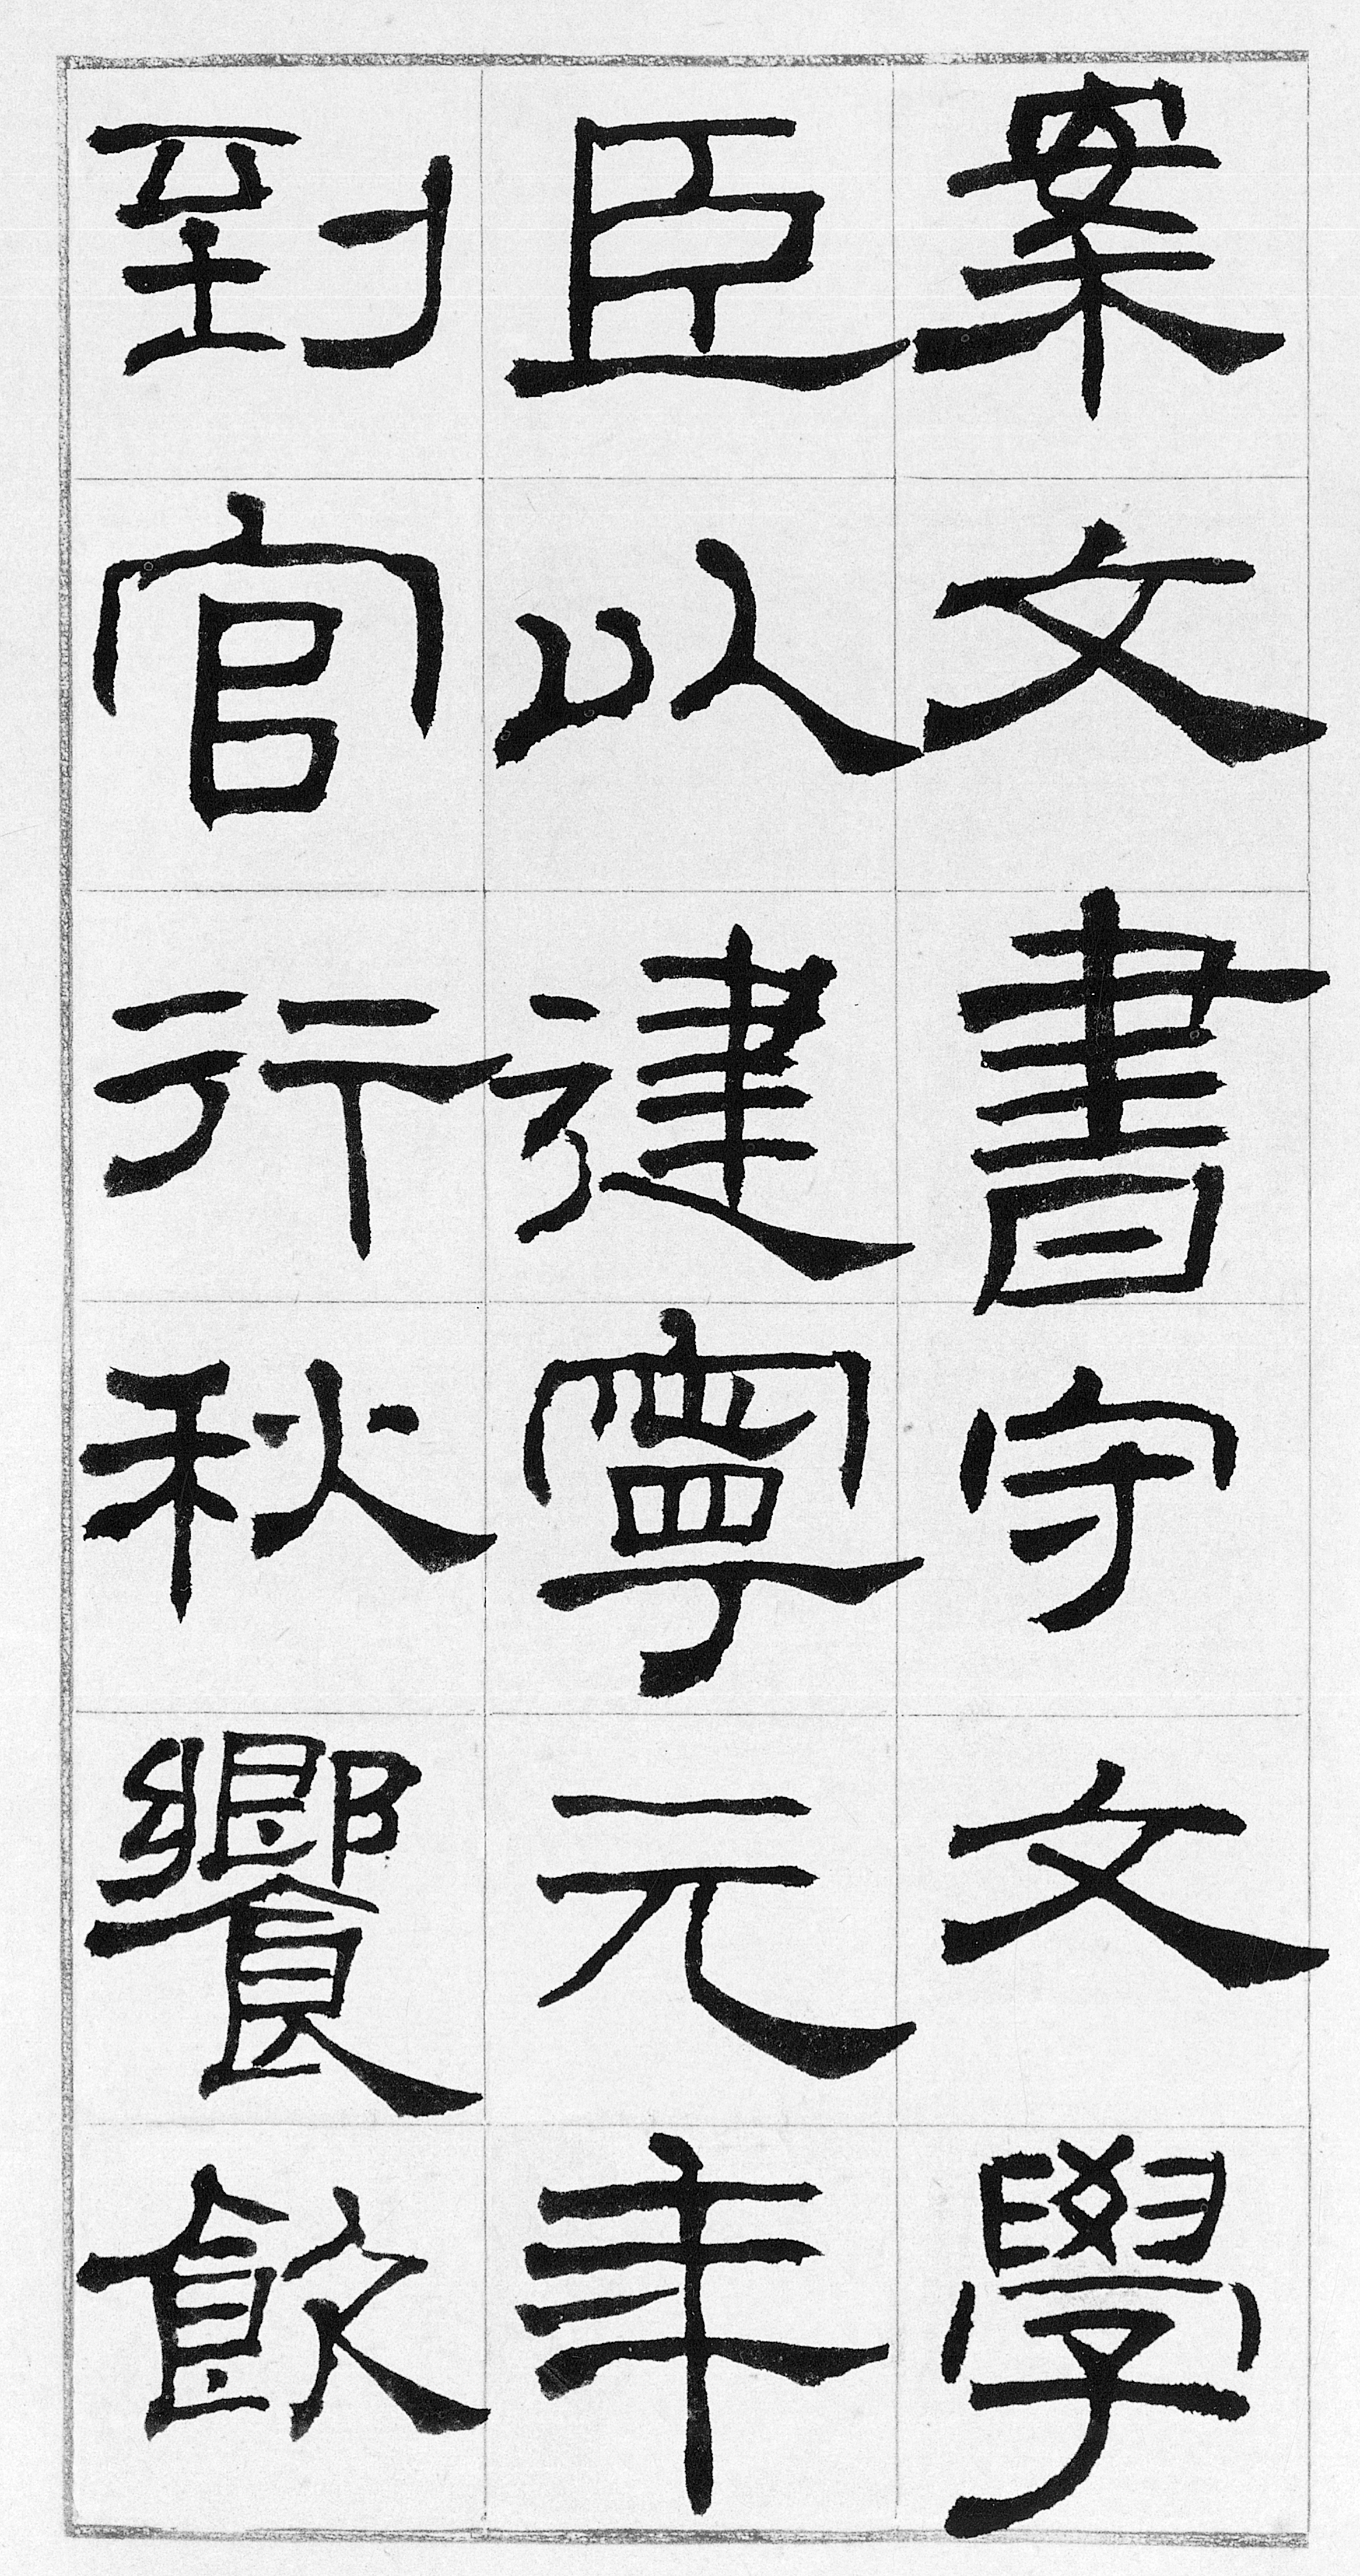 案文書守文學
臣以建寧元年
到官行秋饗飮